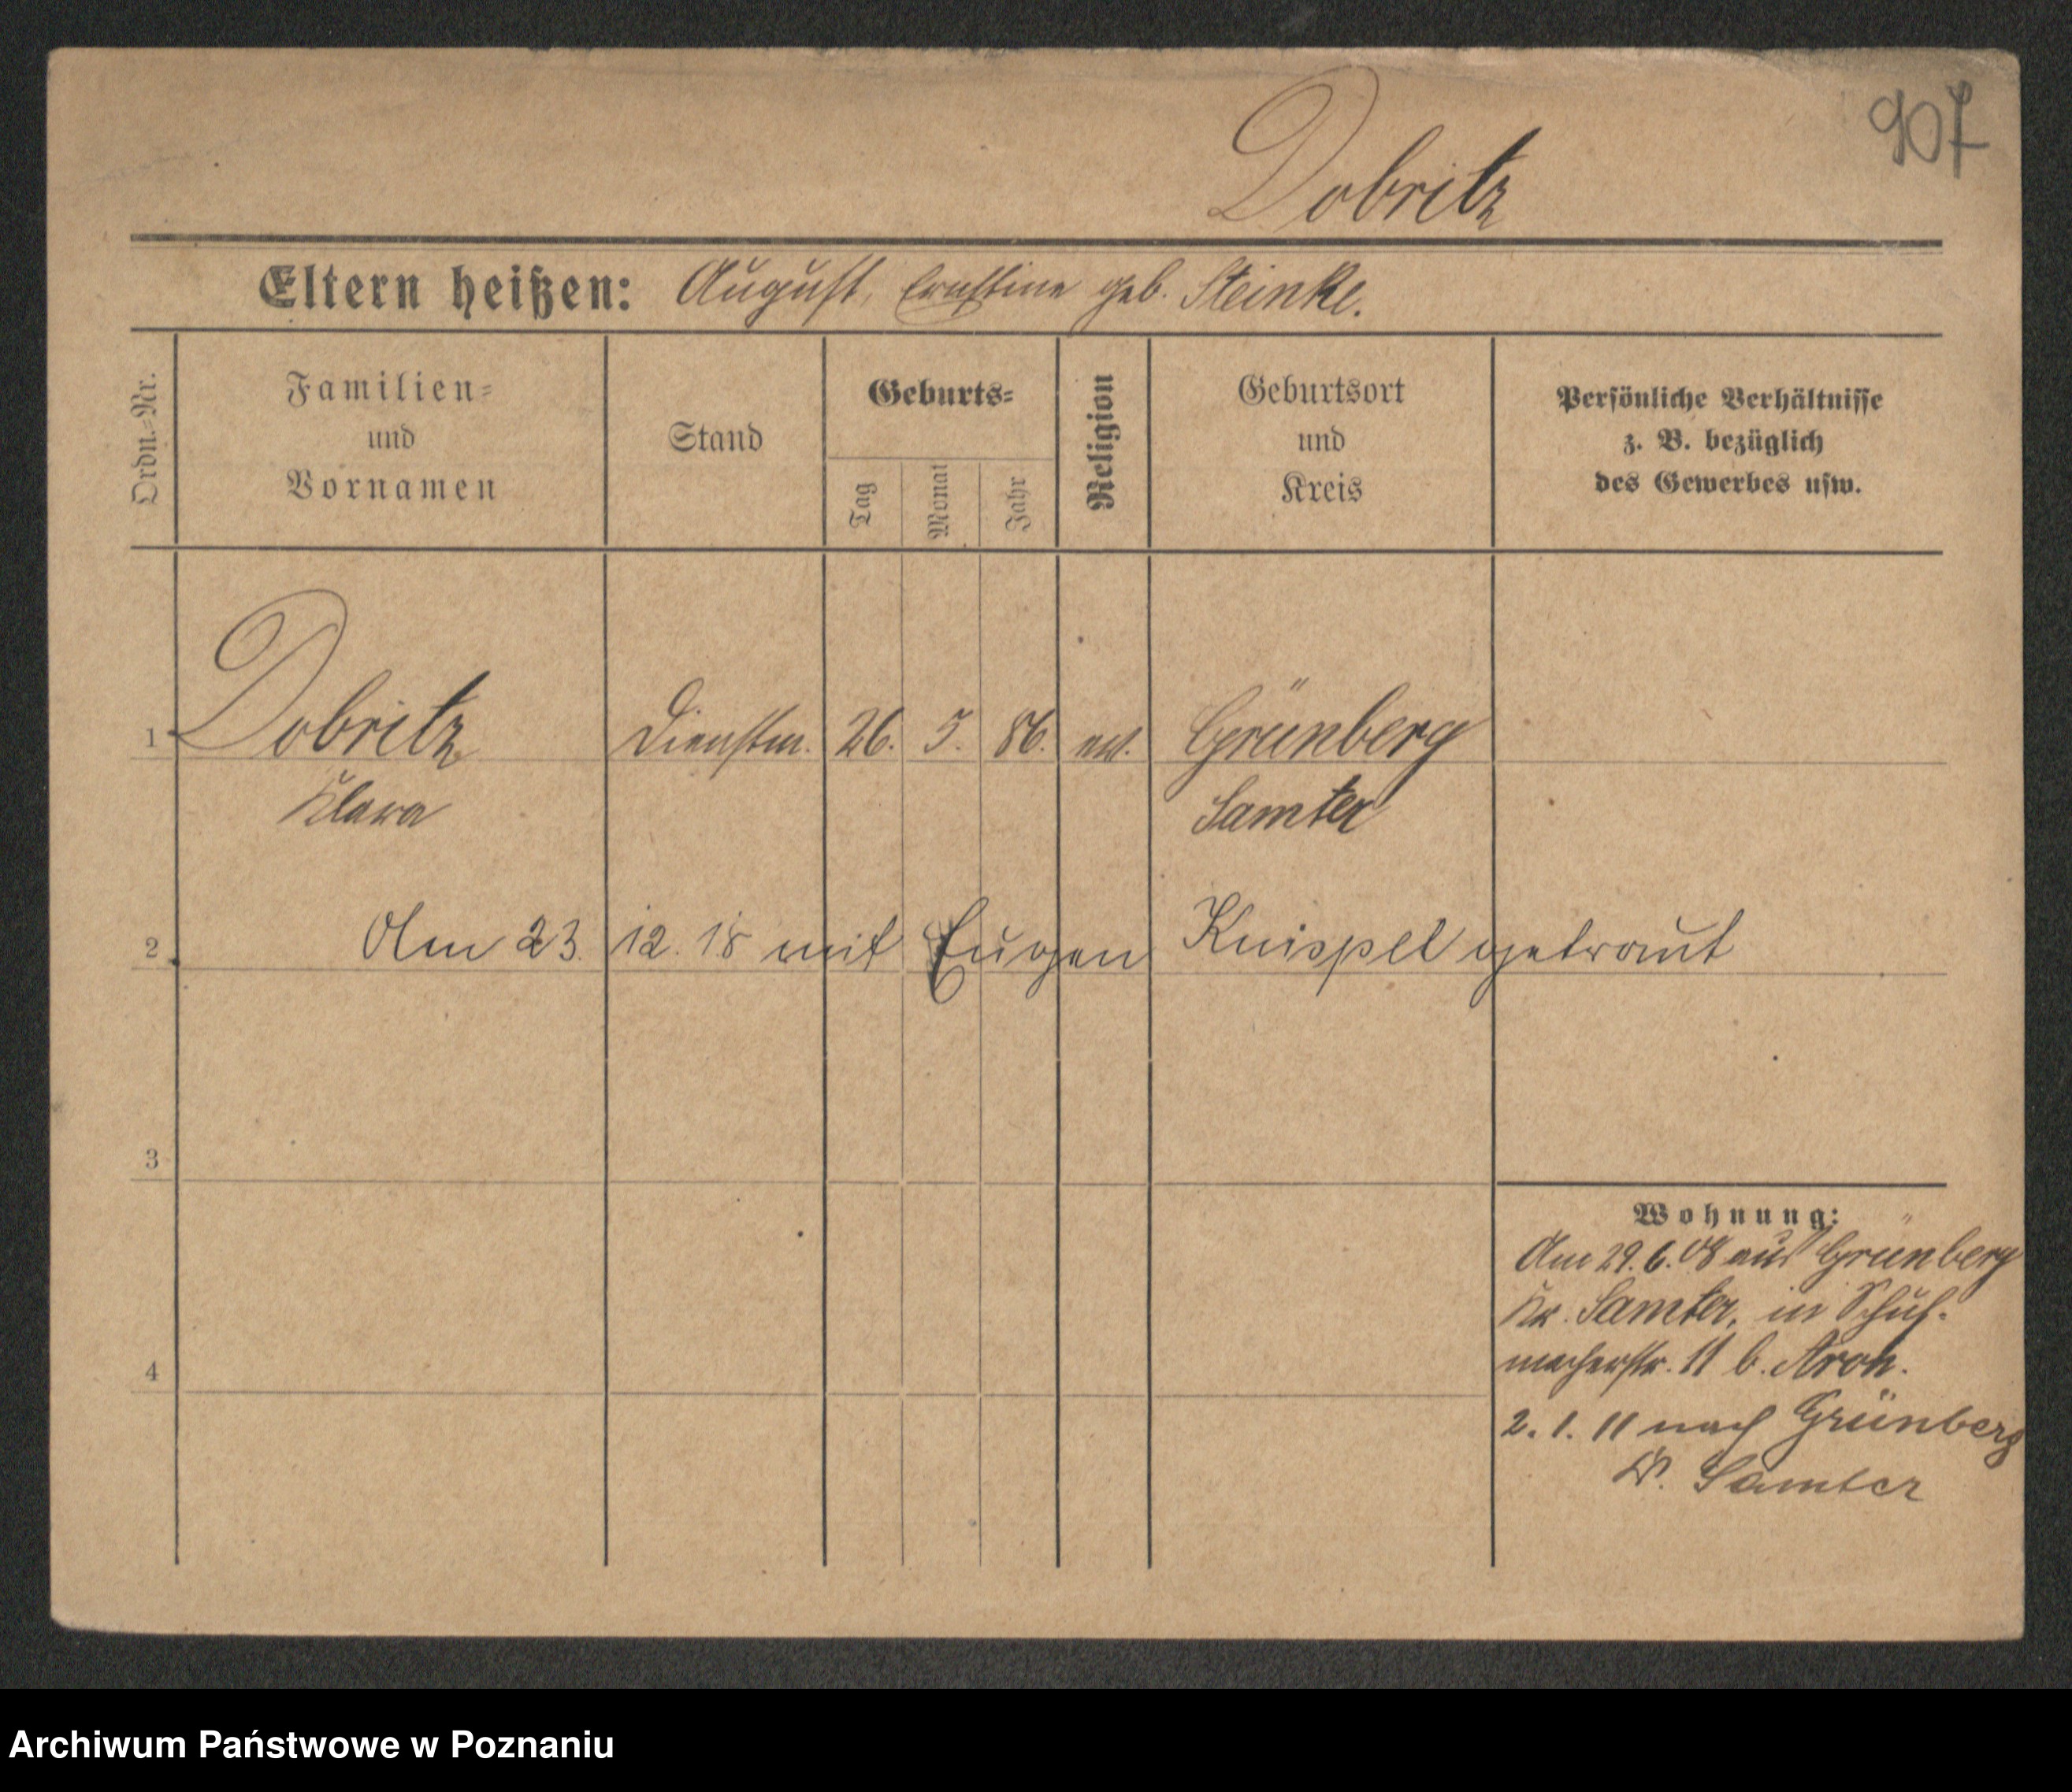 907
Dobritz
Eltern heißen: August, Ernstine geb. Steinke.
Ordn.=Nr.
Familien=
und
Vornamen
Stand
Geburts=
Tag
Monat
Jahr
Religion
Geburtsort
und
Kreis
Persönliche Verhältnisse
z. B. bezüglich
des Gewerbes usw.
1 Dobritz Dienstm. 26. 5. 86. ev. Grünberg
Klara Samter
2 Am 23. 12. 18 mit Eugen Knispel getraut
3
Wohnung:
Am 29. 6. 08 aus Grünberg
Kr. Samter, in Schuh-
macherstr. 11 b. Aron.
4
2. 1. 11 nach Grünberg
Kr. Samter
Archiwum Państwowe w Poznaniu